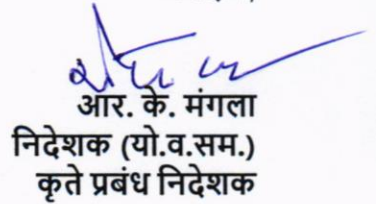 आर. के. मंगला
निदेशक (यो.व.सम.)
कृते प्रबंध निदेशक